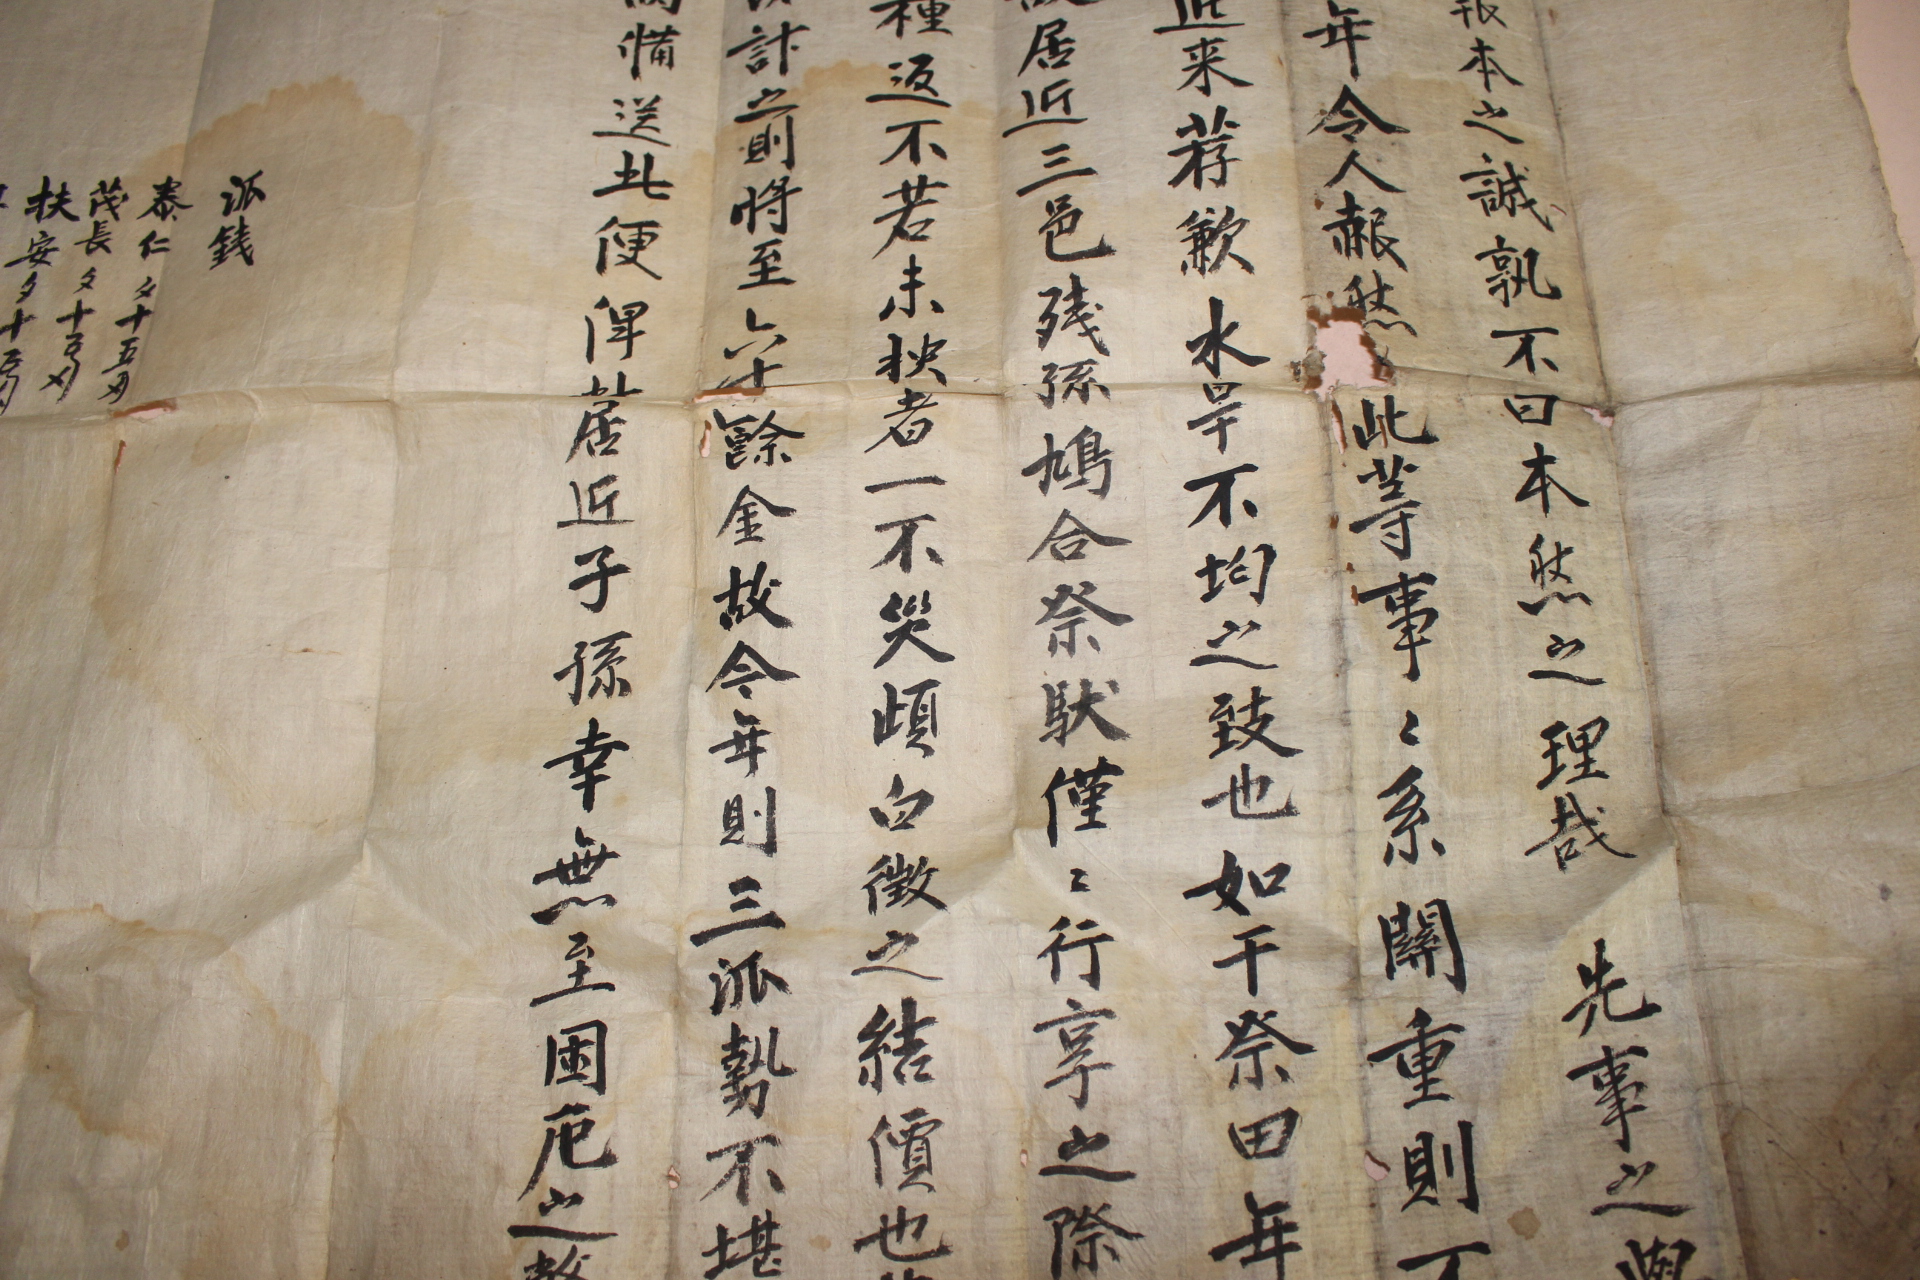 本之誠孰不曰本然之理哉先事之
年令人赧然此等事〻系關重則不
近来荐歉水旱不均之致也如干祭田年
居近三邑残孫鳩合祭狀僅〻行享之際
種返不若未抰者一不災頉白徵之結價也
計之則將至六十餘金故今年則三派勢不堪
備送此便俾居近子孫幸無至困厄之
派錢
泰仁 夕十五
茂長 夕十
扶安 夕十